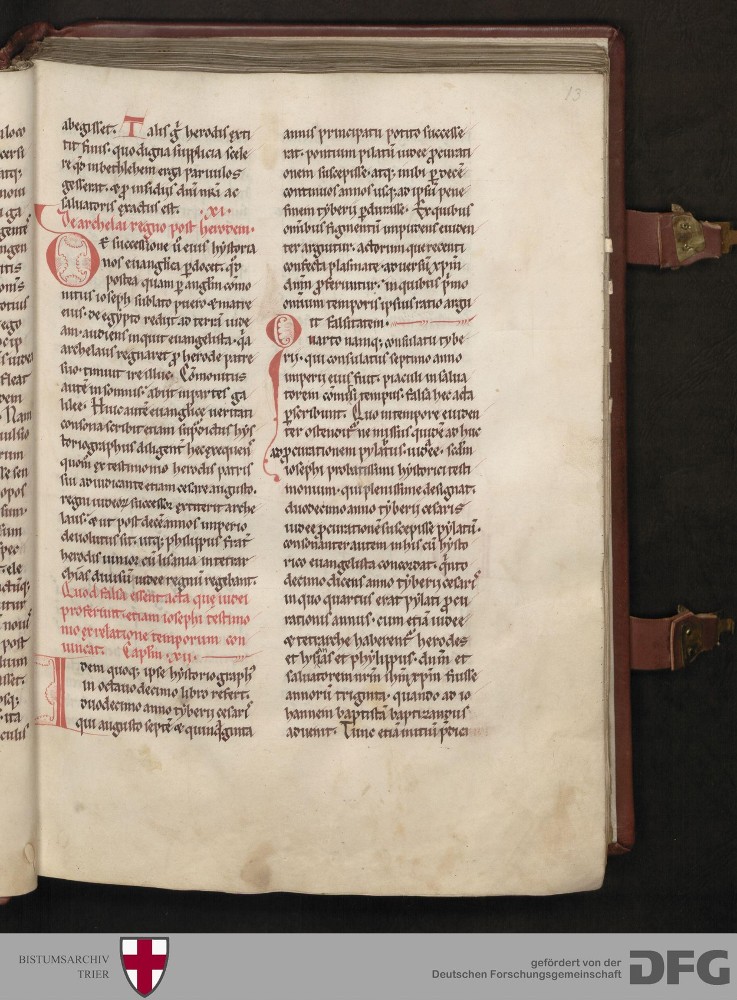 13
abegisset. Talis g̃ herodis exti
tit finis. quo digna supplicia scele
re qđ in bethlehem erga paruulos
gesserat. & ꝓ insidiis dn̄i nr̄i ac
saluatoris exactus est. ·XI·
De archelai regno post herodem.
DE successione u̅ eius hystoria
nos euanglica ꝑdocet. qđ
postea quam ꝑ angl̅m com̅o
nitus ioseph sublato puero & matre
eius. de egypto redit ad terrā iude
am. audiens inquit euangelista. q̅a
archelaus regnaret ꝓ herode patre
suo. timuit ire illuc. Co̅monitus
aute̅ in somnis. abiit in partes ga
lilee. Huic aute̅ euanglice ueritati
consona scribit etiam
toriographus
quom̅ ex testimonio herodis patris
sui adiudicante etiam cesare augusto.
regni iudeoꝝ successor extiterit arche
laus. & ut post dece̅ annos imperio
deuolutus sit. utq; philippus & frat̅
herodis iunior cū lisania in tetrar
chias diuisu̅ iudee regnū regebant.
Quod falsa essent acta que iudei
proferunt. etiam iosephi testimo
nio ex relatione temporum con
uincat. Capl̅m ·xii·
Idem quoq; ipse hystoriograph'
in octauo decimo libro refert.
duodecimo anno tyberii cesaris
qui augusto septe̅ & quinq̅ginta
annis principatu potito successe
rat. pontium pilatū iudee ꝓcurati
onem suscepisse. atq; inibi ꝑ dece̅
continuos annos usq; ad ipsū pene
finem tyberii ꝑdurasse. Ex quibus
omnibus figmenti impudens euiden
ter arguitur. actorum que recenti
confecta plasmate. aduersū xpm̅
dn̅m ꝓferuntur. in quibus p̅mo
omnium temporis ipsius ratio argu
it falsitatem.
Quarto namq; consulatu tybe
rii. qui consulatus septimo anno
imperii eius fuit. piaculi in salua
torem co̅missi tempus. falsa hec acta
ꝑscribunt. Quo in tempore euiden
ter ostenditᷣ ne missus quide̅ adhuc
ad ꝓcurationem pylatus iudee. scdm̅
iosephi probatissimi hystorici testi
monium. qui plenissime designat.
duodecimo anno tyberii cesaris
iudee ꝓcuratione̅ suscepisse pylatū.
consonanter autem in his cū hysto
rico euangelista concordat. quinto
decimo dicens anno tyberii cesaris
in quo quartus erat pylati ꝓcu
rationis annus. cum etiā iudee
& tetrarche haberentᷣ herodes
et lysias et phylippus. dn̅m et
saluatorem nr̅m ihm̅ xpm̅ fuisse
annorū triginta. quando ad io
hannem baptistā baptizandus
aduenit. Tunc etiā initiū p̅dici
BISTUMSARCHIV
TRIER
gefördert von der
Deutschen Forschungsgemeinschaft
DFG